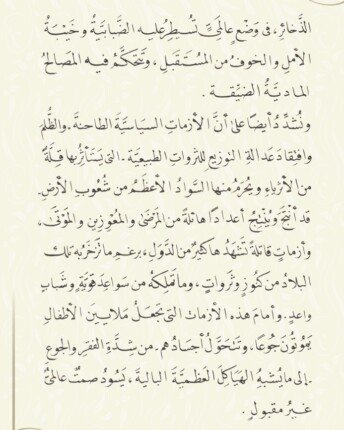 الذَّخائرِ، في وَضْعٍ عالَمِيٍّ تُسَيْطِرُ عليه الضَّبابِيَّةُ وخَيْبَةُ
الأملِ والخوفُ من المُسْتَقبَلِ، وتَتَحَكَّمُ فيه المَصالحُ
الماديَّةُ الضيِّقة .
ونُشَدِّدُ أيضًا على أنَّ الأزماتِ السياسيَّةَ الطاحنةَ . والظُّلمَ
وافتِقادَ عدالةِ التوزيعِ للثرواتِ الطبيعيَّة . التي يَستَأثِرُ بها قِلَّةٌ
من الأثرياءِ ويُحرَمُ منها السَّوادُ الأعظَمُ من شُعُوبِ الأرضِ .
قد أنتَجَ ويُنْتِجُ أعدادًا هائلةً من المَرْضَى والمُعْوِزِين والمَوْتَى،
وأزماتٍ قاتلةً تَشْهَدُها كثيرٌ من الدُّوَلِ، برغمِ ما تَزْخَرُ به تلك
البلادُ من كنوزٍ وثَرواتٍ، وما تَملِكُه من سَواعِدَ قَوِيَّةٍ وشَبابٍ
واعدٍ . وأمامَ هذه الأزماتِ التي تجعَلُ مَلايينَ الأطفالِ
يَمُوتُون جُوعًا، وتَتَحَوَّلُ أجسادُهم . من شِدَّةِ الفقرِ والجوعِ
. إلى ما يُشبِهُ الهَيَاكِلَ العَظميَّةَ الباليةَ، يَسُودُ صمتٌ عالميٌّ
غيرُ مقبولٍ .